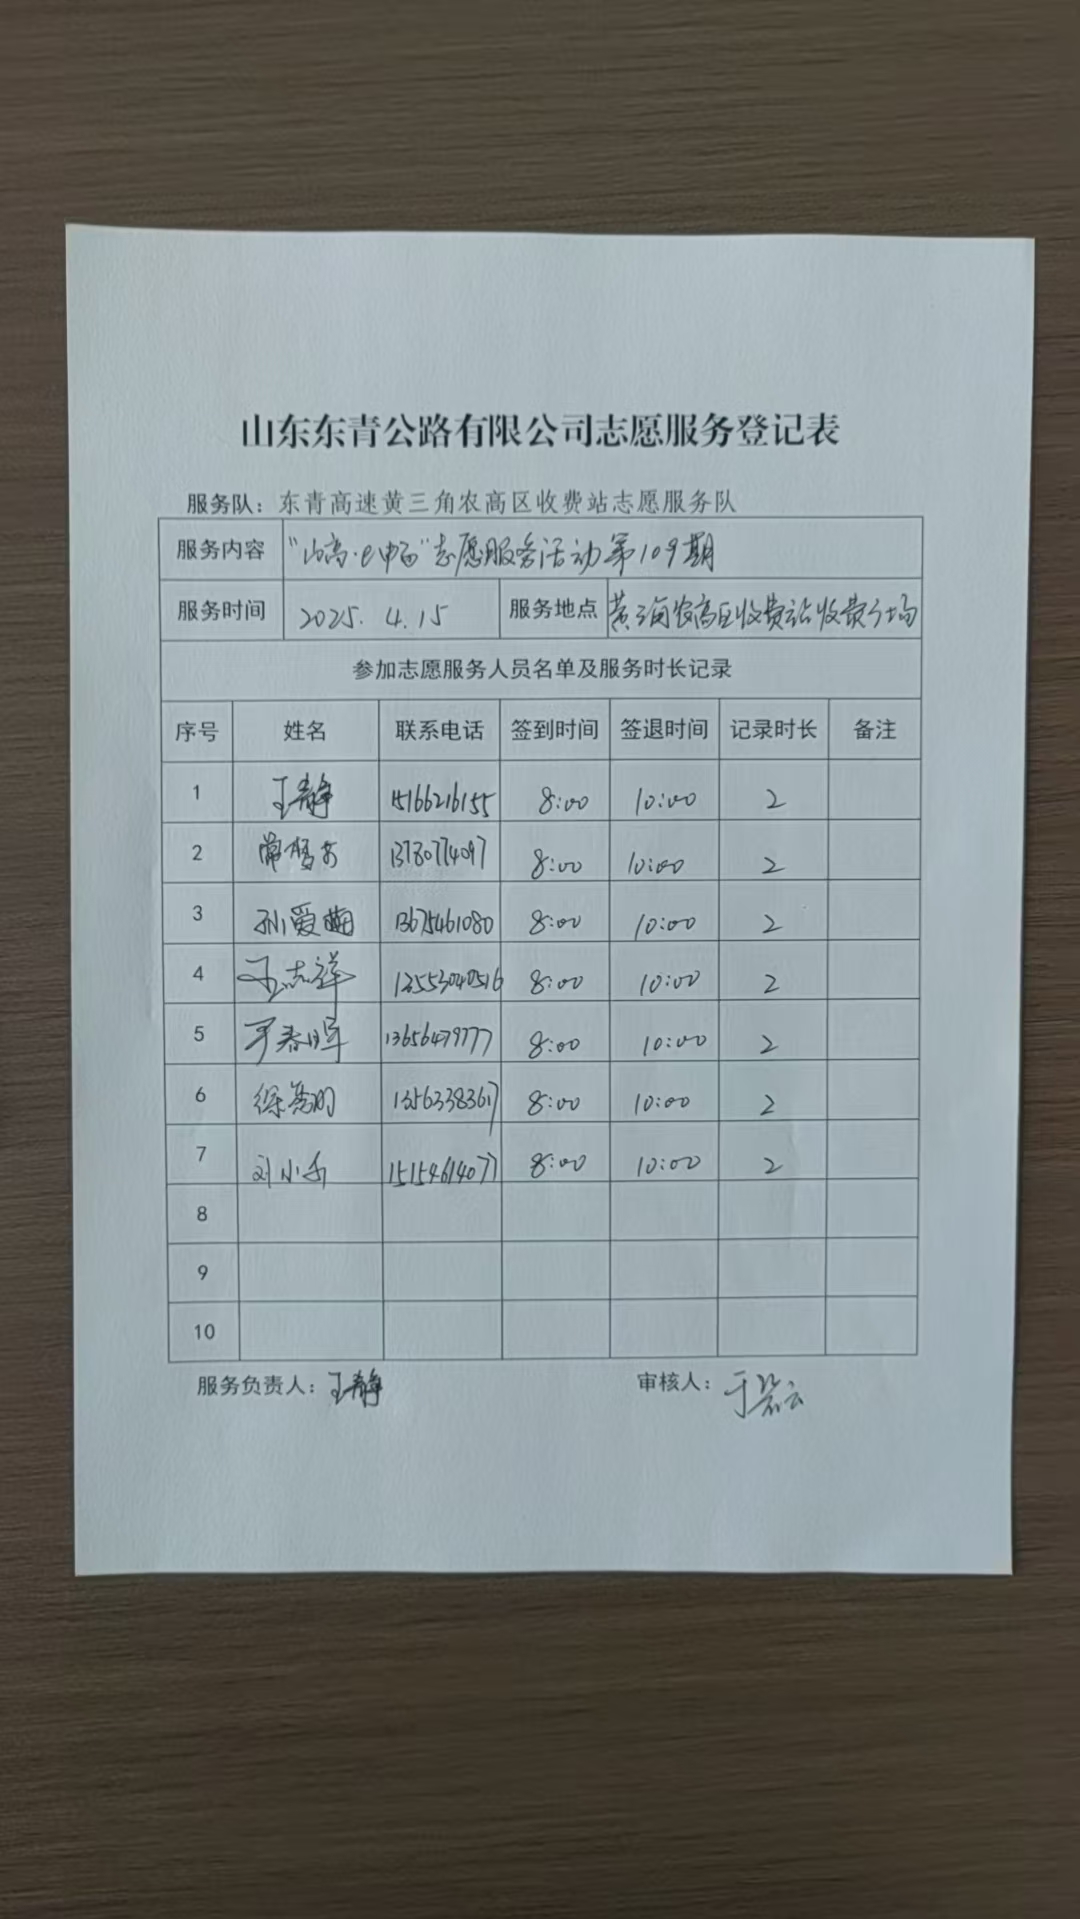 山东东青公路有限公司志愿服务登记表
服务队：东青高速黄三角农高区收费站志愿服务队
服务内容 "山高·e中百"志愿服务活动第109期
服务时间 2025.4.15 服务地点 黄三角农高区收费站收费广场
参加志愿服务人员名单及服务时长记录
序号 姓名 联系电话 签到时间 签退时间 记录时长 备注
1 王静 15166216155 8:00 10:00 2
2 13780774097 8:00 10:00 2
3 孙爱 13675461080 8:00 10:00 2
4 王志祥 13553040516 8:00 10:00 2
5 春晖 13656479777 8:00 10:00 2
6 徐 13563383617 8:00 10:00 2
7 刘小 15154614077 8:00 10:00 2
8
9
10
服务负责人：王静 审核人：于云